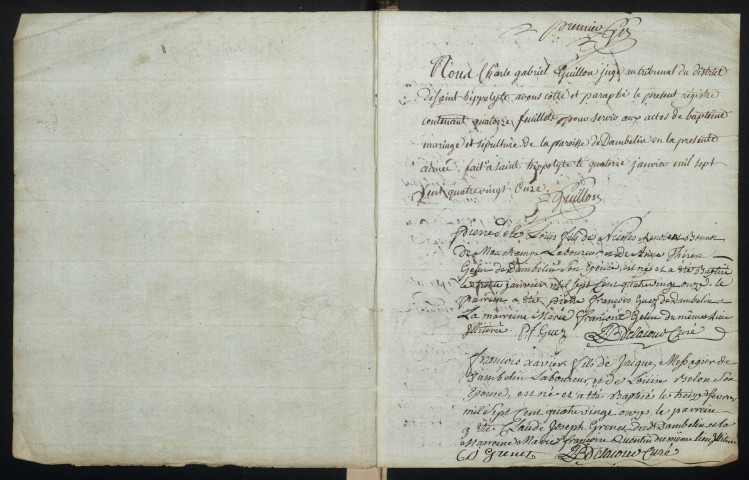 premier
Nous Charle gabriel Guillon juge au tribunal du district
de saint hippolyte avons cotte et paraphé le present registre
contenant quatorze feuillets pour servir aux actes de bapteme
mariage et sepulture de la paroisse de Dambelin en la presente
année. fait a saint hippolyte le quatorze janvier mil sept
cent quatrevingt onze.
Guillon
pierre Louis fils de Nicolas
de Laboureur et de Anne Therese
de Dambelin son Epouse, est né et a été Baptisé
le janvier mil sept cent quatre vingt onze. le
parrein a été pierre François Guez de dambelin
La marreine Marie Françoise du même lieu
illiterée P. f Guez JB Delacour Curé
françois xavier fils de Jacque Messagier de
Dambelin Laboureur et de Louise son
Epouse, est né et a été Baptisé le fevrier
mil Sept Cent quatre vingt onze, le parrein
a été Claude Joseph Grenet de Dambelin et la
Marreine Marie françoise du même lieu
Grenet JB Delacour Curé